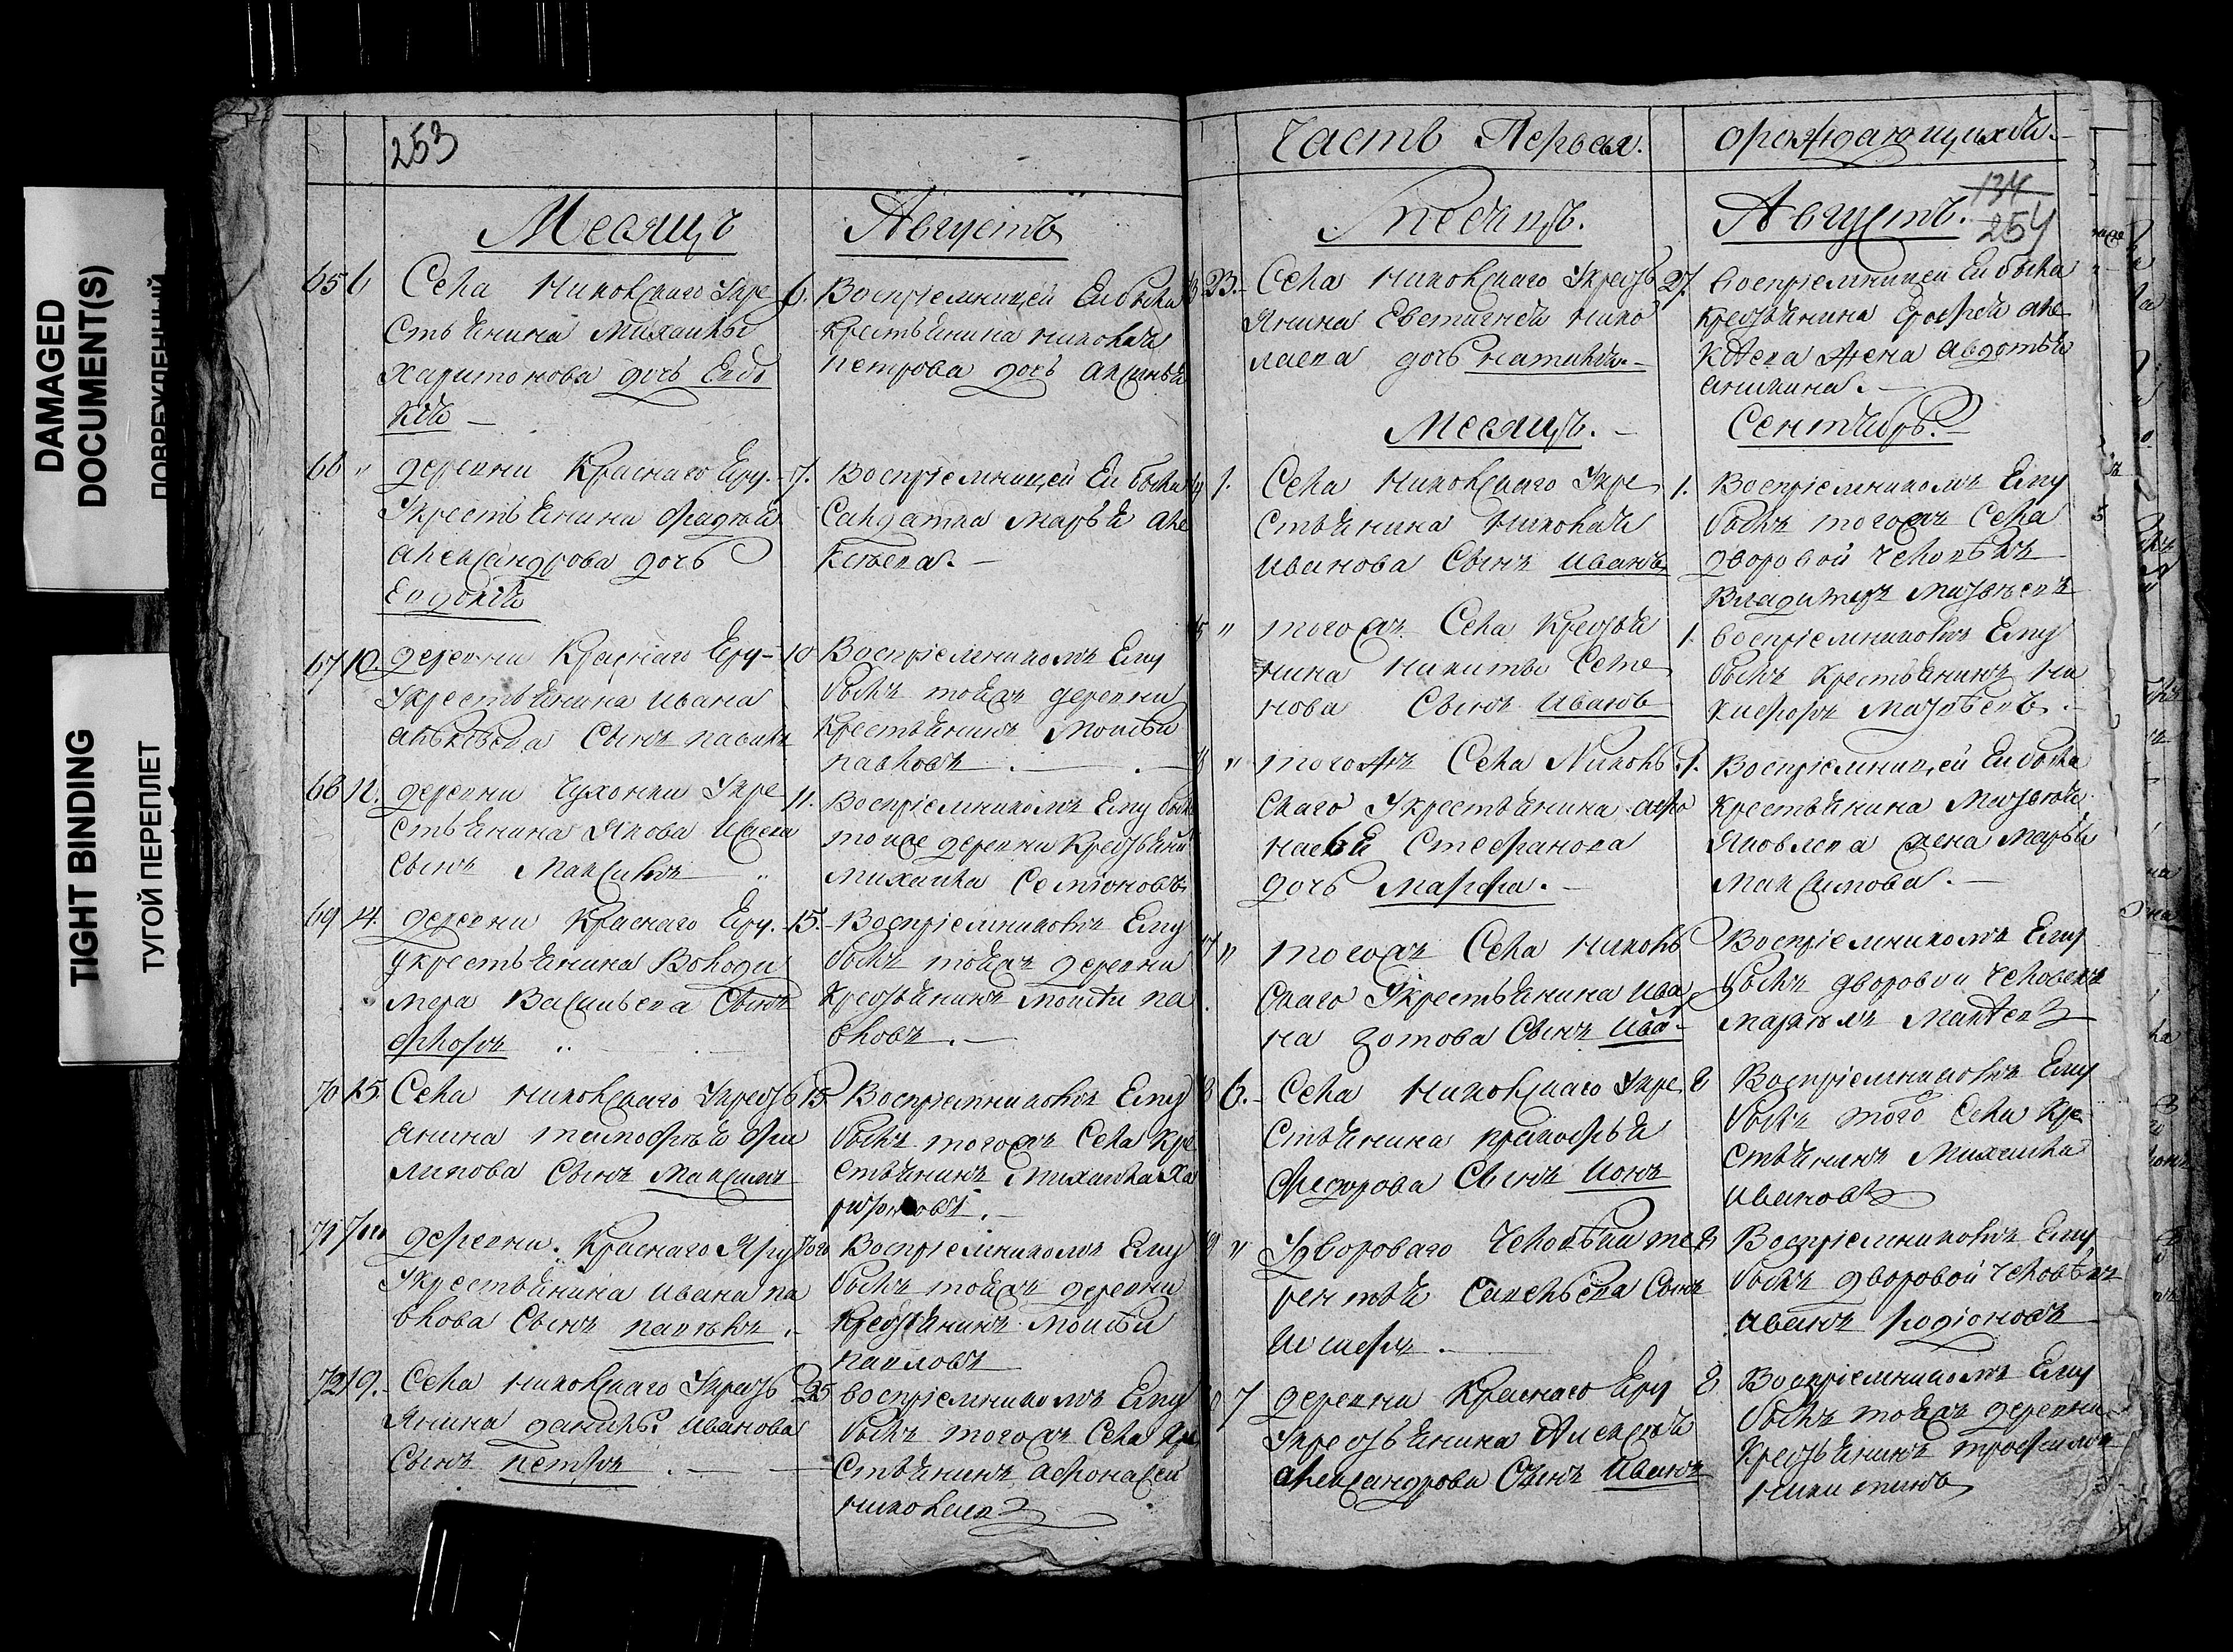 DAMAGED
DOCUMENT(S)
TIGHT BINDING
ТУГОЙ ПЕРЕПЛЕТ
253
Месяцъ Августъ
65 6 Села Никольскаго Укре
стьянина Михайлы
Харитонова дочь Евдо
кія
6. Воспріемницей Ей была
крестьянина Николая
Петрова дочь Аксинья
66 " деревни Краснаго Еру.
Укрестьянина Фадея
Александрова дочь
Евдокія
7. Воспріемницей Ей была
Салдатка Марья Але
ксѣева.
67 10 деревни Краснаго Еру
Укрестьянина Ивана
Сынъ Павилъ
10 Воспріемникомъ Ему
былъ тояжъ деревни
Крестьянинъ Моисѣй
Павловъ
68 11. деревни Чухонки Укре
стьянина Якова
Сынъ Максимъ
11. Воспріемникомъ Ему былъ
тойже деревни
Михайла Семіоновъ
69 14. деревни Краснаго Еру.
Укрестьянина Володи
мера Васильева Сынъ
Флоръ
15. Воспріемникомъ Ему
былъ тояжъ деревни
Крестьянинъ Моисѣй Па
вловъ.
70 15 Села Никольскаго Укресть
янина Тимофѣя Фи
липова Сынъ Максимъ
15 Воспріемникомъ Ему
былъ тогожъ Села Кре
стьянинъ Михайла Ха
ритоновъ.
71 деревни Краснаго Яру
Укрестьянина Ивана Па
влова Сынъ Павелъ
Воспріемникомъ Ему
былъ тояжъ деревни
Крестьянинъ Моисѣй
Павловъ
72 19. Села Никольскаго Укресть
янина Данилы Иванова
Сынъ Петръ
25 Воспріемникомъ Ему
былъ тогожъ Села Кре
стьянинъ Афонасей
Николаевъ
Часть Первая. ораждающихся
134
254
Месяцъ. Августъ.
23. Села Никольскаго Укресть
янина Евстигнея Нико
лаева дочь Наталья
27. Воспріемницей Ей была
Крестьянина Ерофея Але
ксѣева жена Авдотья
Аникина.
Месяцъ. Сентябрь.
1. Села Никольскаго Укре
стьянина Николая
Иванова Сынъ Иванъ
1. Воспріемникомъ Ему
былъ тогожъ Села
дворовой человѣкъ
Владимеръ Матвѣевъ
" тогожъ Села Кресть
нина Никиты
нова Сынъ Иванъ
1. Воспріемникомъ Ему
былъ Крестьянинъ Ни
кифоръ Матвѣевъ.
" тогожъ Села Николь
скаго Укрестьянина Афо
насья Стефанова
дочь Марфа.
1. Воспріемницей Ей была
Крестьянина Матвѣя
Яковлева жена Марья
Максимова.
" тогожъ Села Николь
скаго Укрестьянина Ива
на Зотова Сынъ Ива
Воспріемникомъ Ему
былъ дворовой человекъ
6. Села Никольскаго Укре
стьянина Прокофья
Федорова Сынъ Іонъ
8 Воспріемникомъ Ему
былъ того Села Кре
стьянинъ Михайла
Ивановъ
" Удвороваго человѣка Те
рентья Савельева Сынъ
8 Воспріемникомъ Ему
былъ дворовой человѣкъ
Иванъ Родіоновъ
7 деревни Краснаго Еру
Укрестьянина Алексѣя
Александрова Сынъ Иванъ
8 Воспріемникомъ Ему
былъ тояжъ деревни
Крестьянинъ Трофимъ
Никитинъ